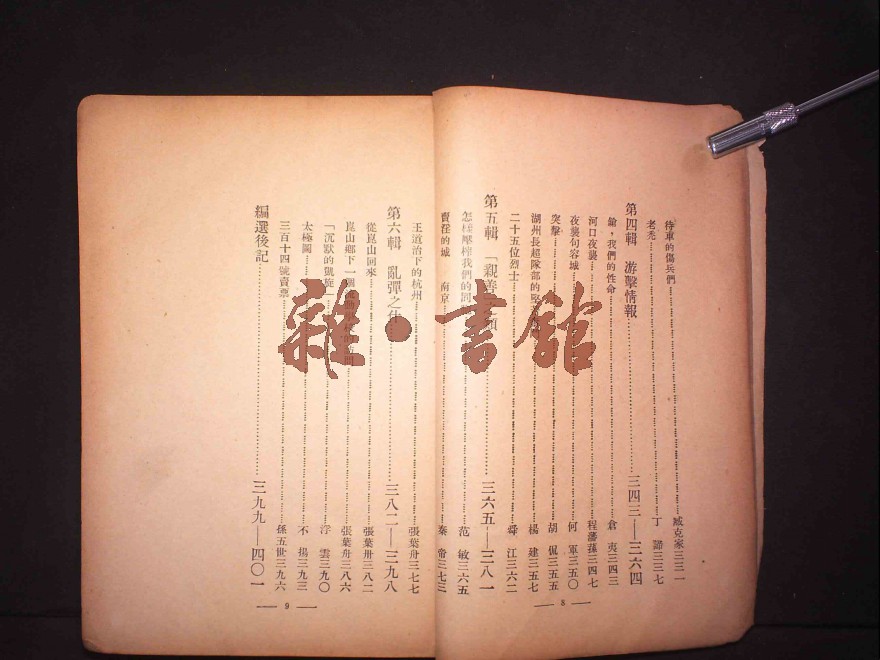 待車的傷兵們……臧克家三三一
老禿……丁 諦三三七
第四輯 游擊情報……三四三——三六四
鎗，我們的性命……倉 夷三四三
河口夜襲……程藩蓀三四七
夜襲句容城……何 軍三五〇
突擊……胡 侃三五五
湖州長超隊部的……楊 建三五七
二十五位烈士……舜 江三六二
第五輯 「親善……三六五——三八一
怎樣壓榨我們的同……范 敏三六五
賣淫的城 南京……秦 帝三七三
8
王道治下的杭州……張葉舟三七七
第六輯 亂彈之什……三八二——三九八
從崑山回來……張葉舟三八二
崑山鄉下一個……張葉舟三八六
「沉默的凱旋」……浮 雲三九〇
太極圖……不 揚三九三
三百十四號賣票……孫五世三九六
編選後記……三九九——四〇一
9
雜·書館